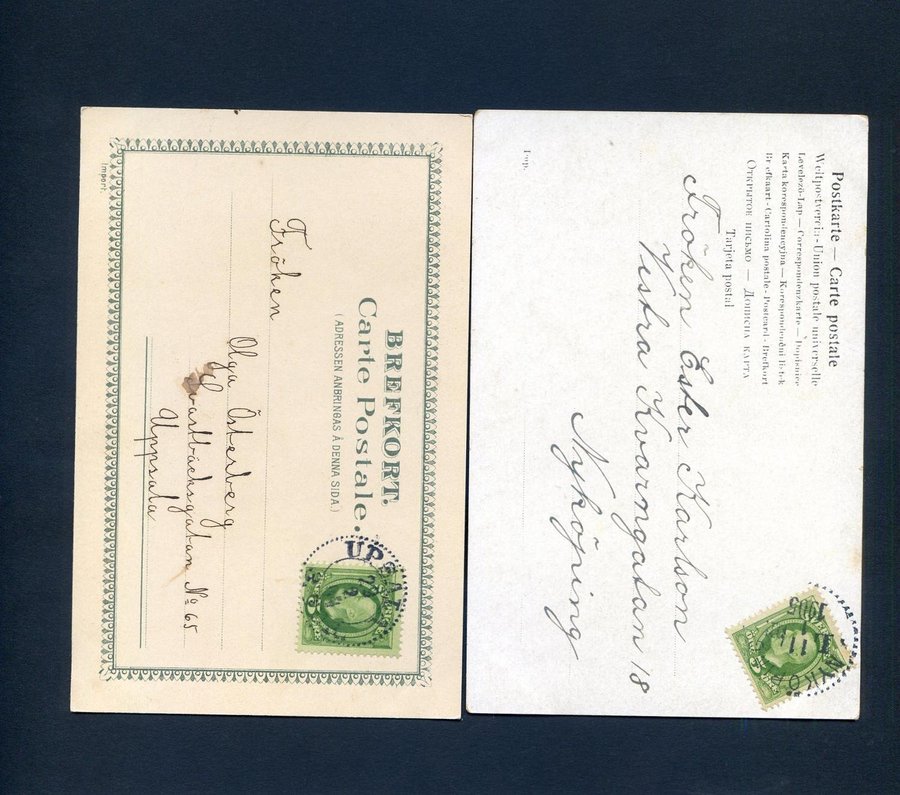 BREFKORT.
Carte Postale.
(ADRESSEN ANBRINGAS Å DENNA SIDA.)
Fröken
Olga Österberg
Svartbäcksgatan No 65
Uppsala
Import:
UPSALA
5
Postkarte — Carte postale
Weltpostverein - Union postale universelle
Levelező-Lap — Correspondenzkarte — Dopisnice
Karta korespondencyjna — Korespondenční listek
Brefkaart - Cartolina postale - Postcard - Brefkort
Открытое письмо — Дописна карта
Tarjeta postal
Fröken Ester Karlson
Vestra Kvarngatan 18
Nyköping
Imp.
1905
5